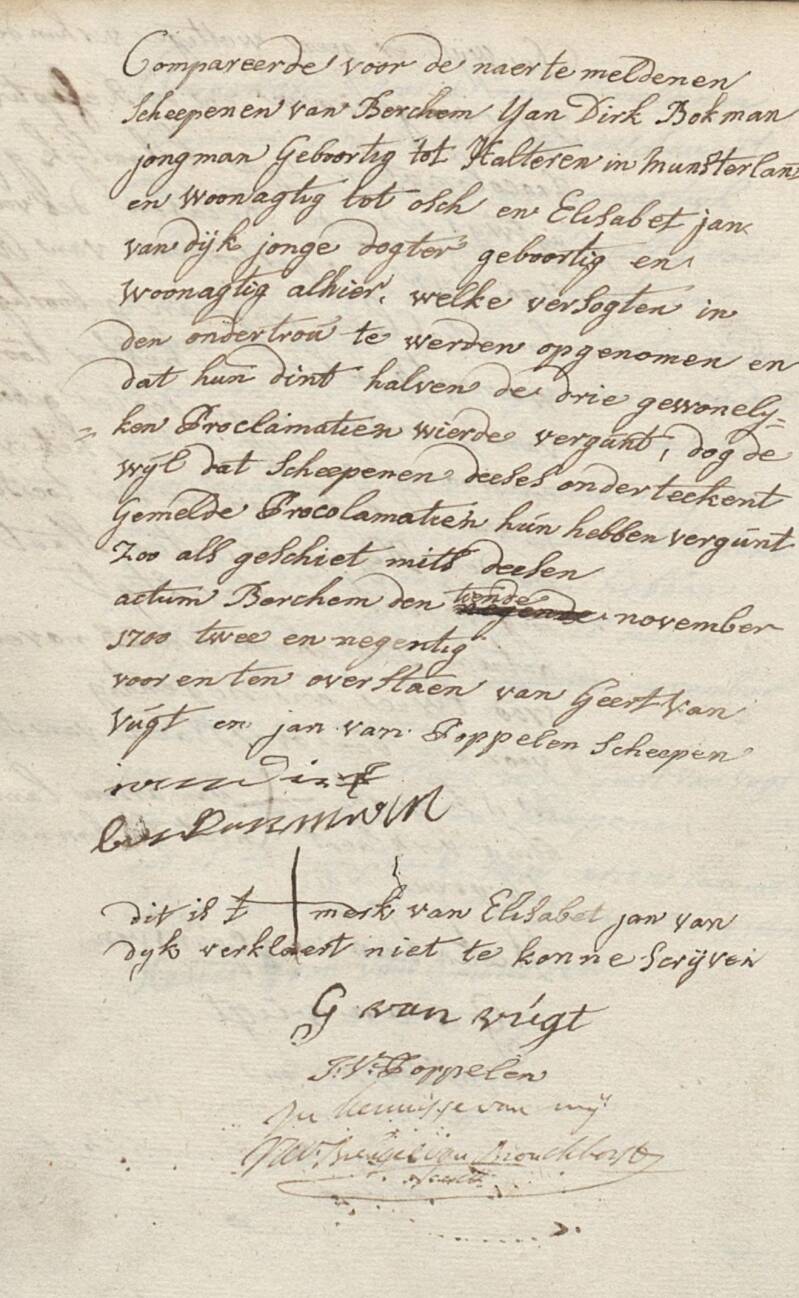 Compareerde voor de naer te meldenen
Scheepenen van Berchem Yan Dirk Bokman
jongman Geboortig tot Halteren in Munsterland
en woonagtig tot osch en Elisabet jan
van dijk jonge dogter geboortig en
woonagtig alhier, welke versogten in
den ondertrou te werden opgenomen en
dat hun dint halven de drie gewonely=
=ken Proclamatien wierde vergunt, dog de
wyl dat Scheepenen deeses onderteekent
Gemelde Procolamatien hun hebben vergunt
Zoo als geschiet mits deesen
actum Berchem den tiende november
1700 twee en negentig
voor en ten overstaen van Geert van
Vugt en jan van Poppelen Scheepen
dit is t merk van Elisabet jan van
dyk verklaert niet te konne Scrijven
G van vugt
J: V: Poppelen
In kennisse van mij